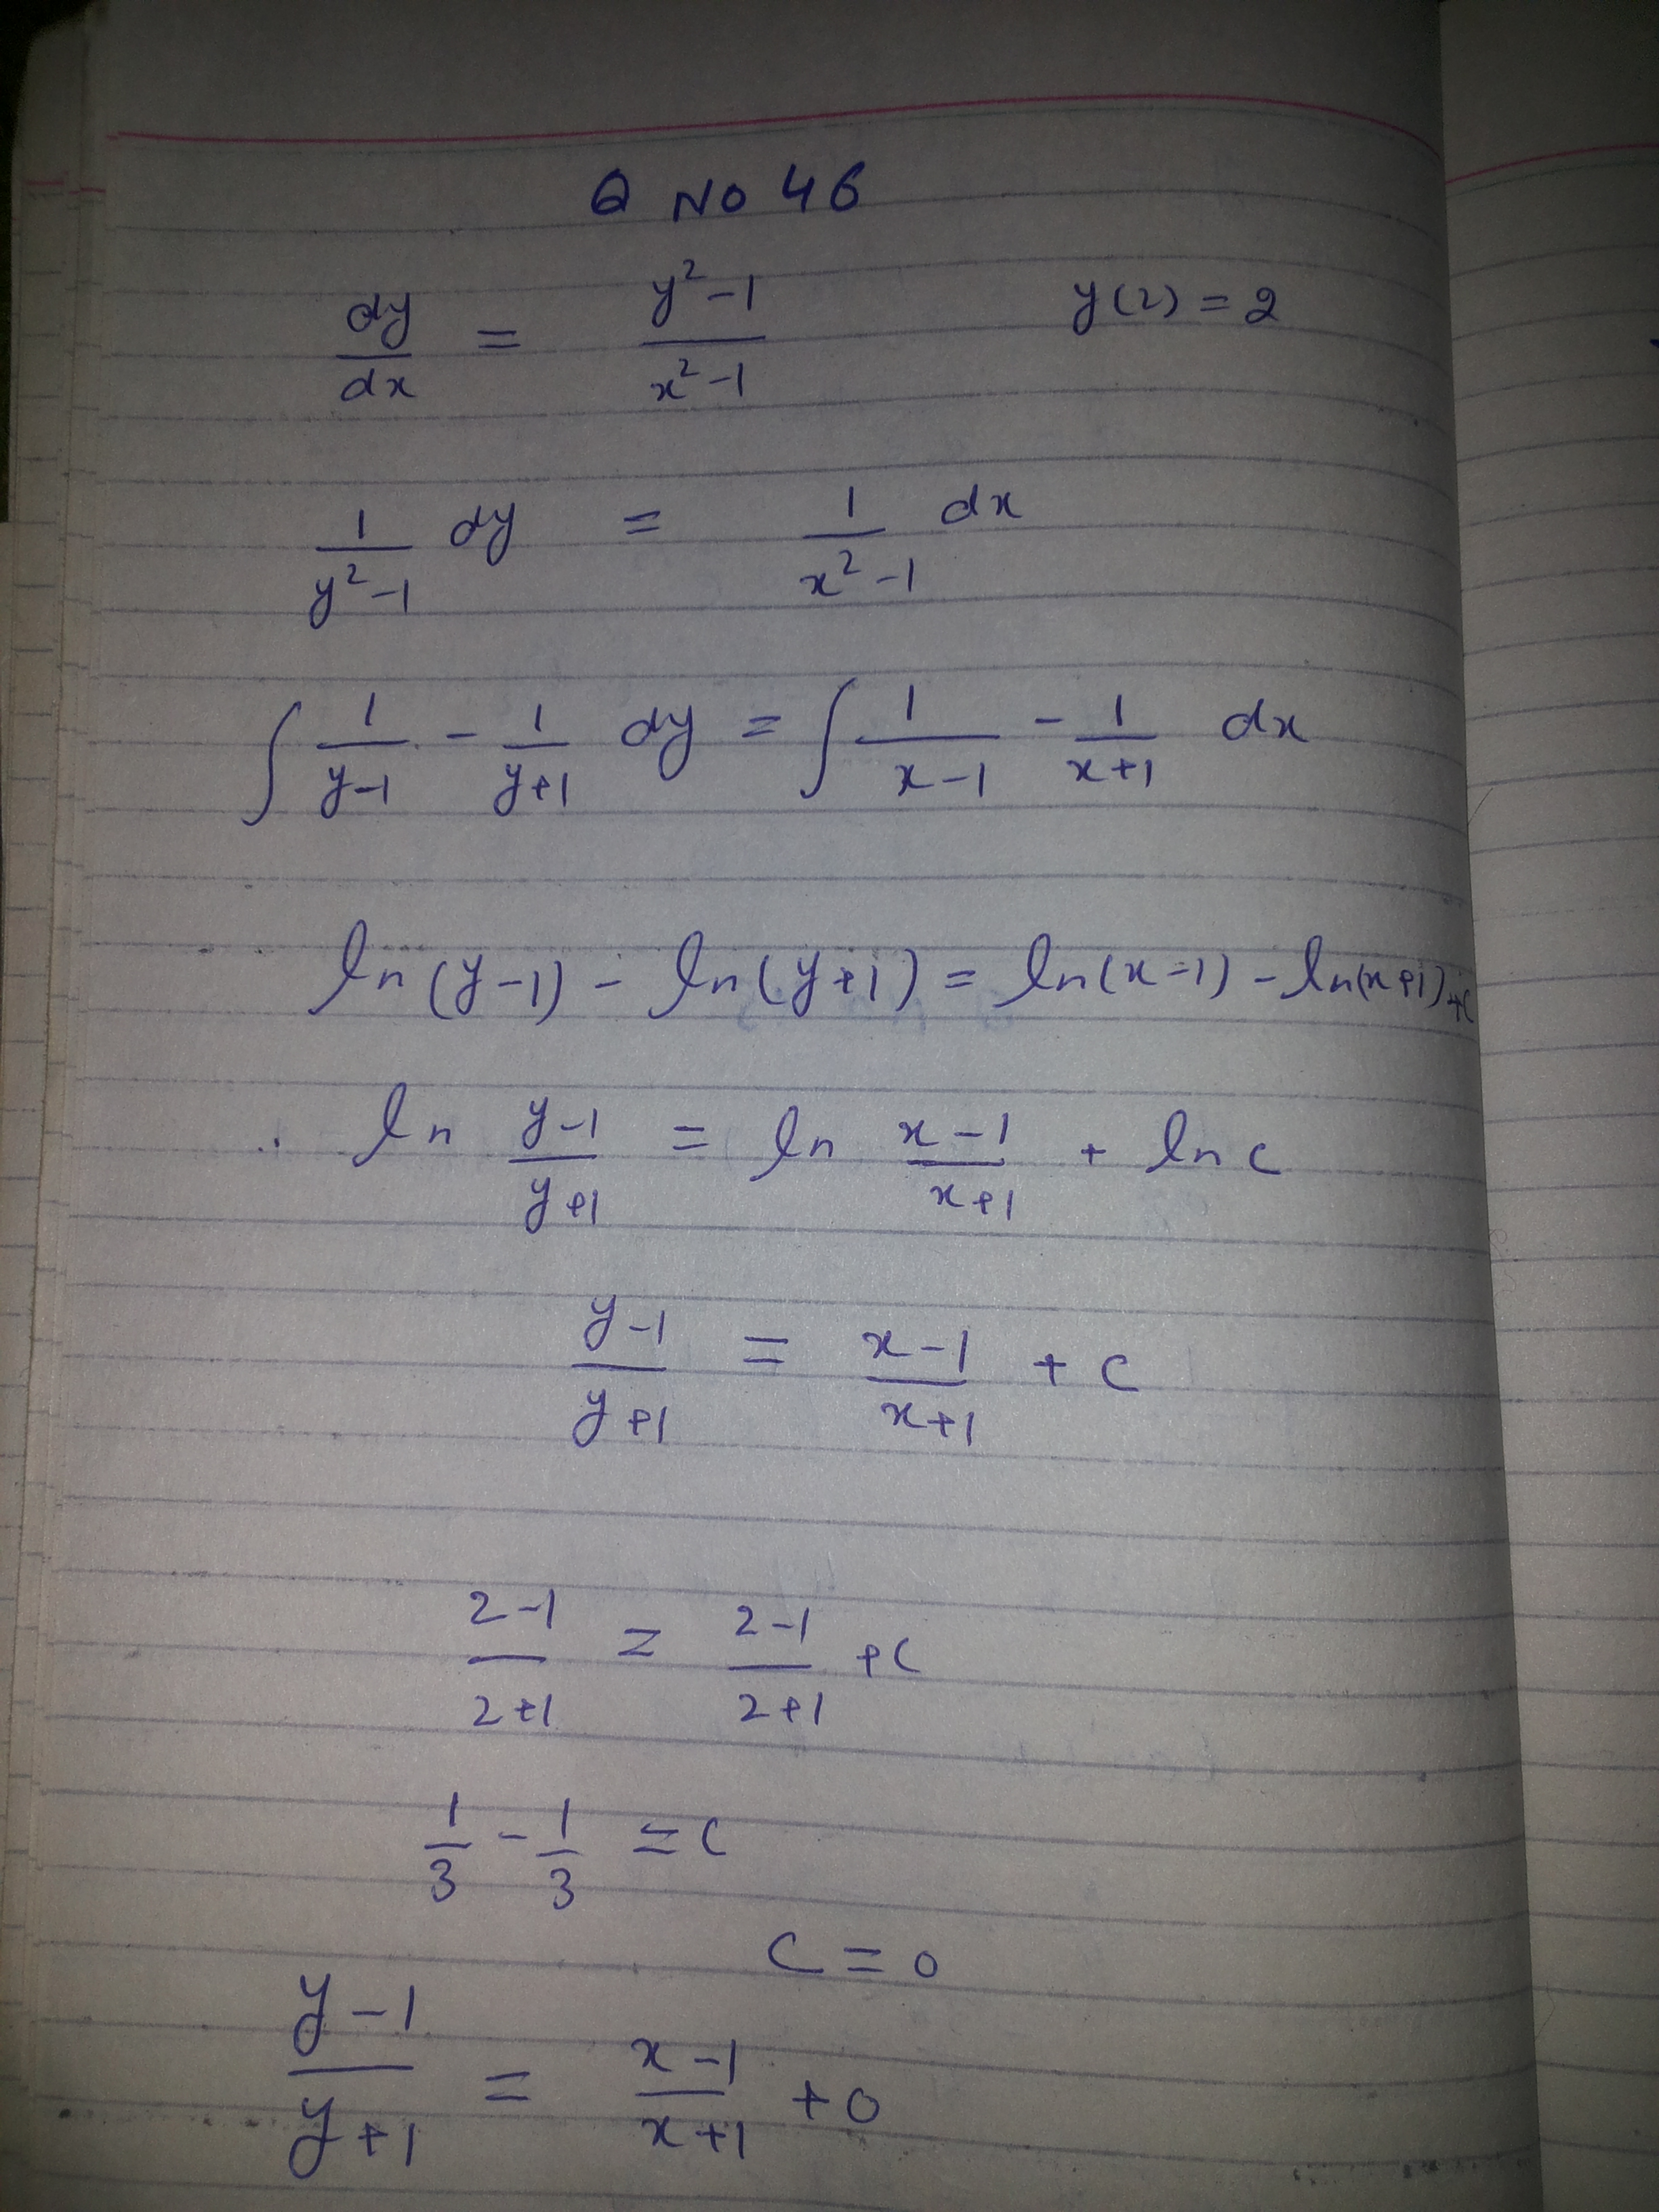 Q NO 46
dy/dx = (y²-1)/(x²-1) y(2) = 2
1/(y²-1) dy = 1/(x²-1) dx
∫ 1/(y-1) - 1/(y+1) dy = ∫ 1/(x-1) - 1/(x+1) dx
ln(y-1) - ln(y+1) = ln(x-1) - ln(x+1) + c
ln (y-1)/(y+1) = ln (x-1)/(x+1) + ln c
(y-1)/(y+1) = (x-1)/(x+1) + c
(2-1)/(2+1) = (2-1)/(2+1) + c
1/3 - 1/3 = c
c = 0
(y-1)/(y+1) = (x-1)/(x+1) + 0